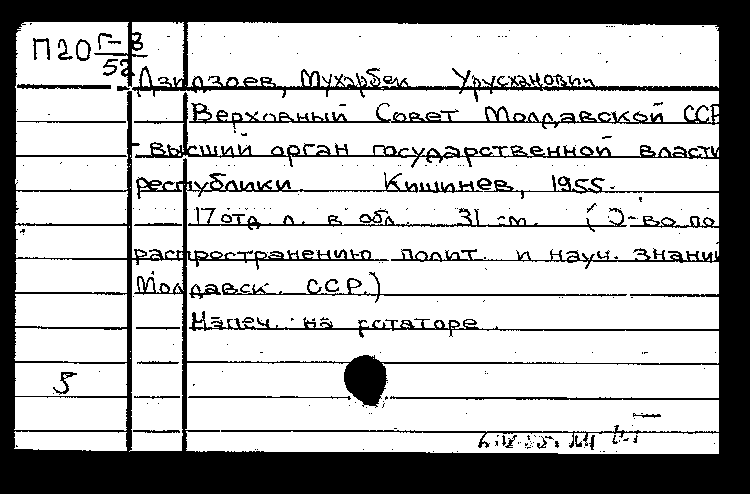 П20 Г-3
52
Дзидзоев, Мухарбек Урусханович
Верховный Совет Молдавской ССР
- высший орган государственной власти
республики. Кишинев, 1955.
17 отд. л. в обл. 31 см. (О-во по
распространению полит. и науч. знаний
Молдавск. ССР.)
Напеч. на ротаторе.
5